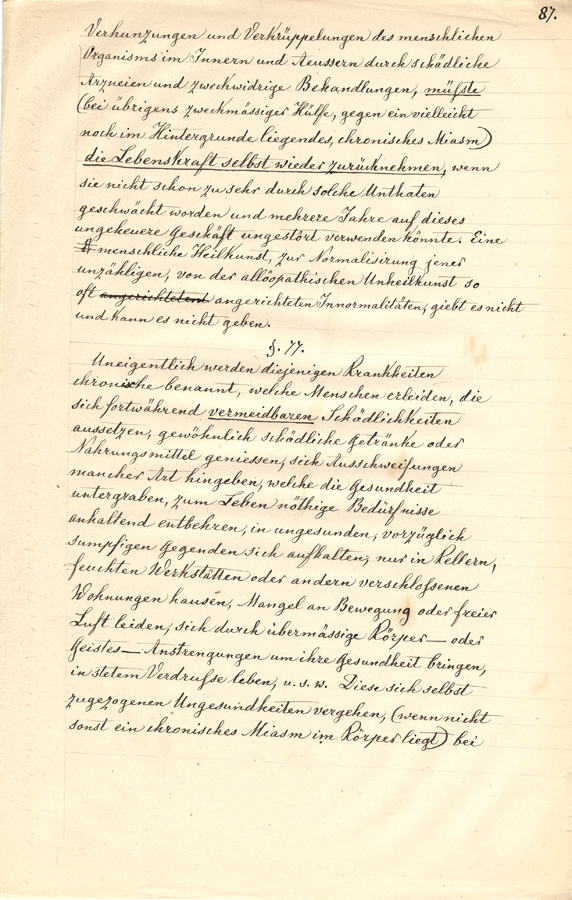 87.
Verhunzungen und Verkrüppelungen des menschlichen
Organisms im Innern und Aeussern durch schädliche
Arzneien und zweckwidrige Behandlungen, müßte
(bei übrigens zweckmässiger Hülfe, gegen ein vielleicht
noch im Hintergrunde liegendes, chronisches Miasm)
die Lebenskraft selbst wieder zurücknehmen, wenn
sie nicht schon zu sehr durch solche Unthaten
geschwächt worden und mehrere Jahre auf dieses
ungeheuere Geschäft ungestört verwenden könnte. Eine
menschliche Heilkunst, zur Normalisirung jener
unzähligen, von der allöopathischen Unheilkunst so
oft angerichteten angerichteten Innormalitäten, giebt es nicht
und kann es nicht geben.
§. 77.
Uneigentlich werden diejenigen Krankheiten
chronische benannt, welche Menschen erleiden, die
sich fortwährend vermeidbaren Schädlichkeiten
aussetzen, gewöhnlich schädliche Getränke oder
Nahrungsmittel geniessen, sich Ausschweifungen
mancher Art hingeben, welche die Gesundheit
untergraben, zum Leben nöthige Bedürfnisse
anhaltend entbehren, in ungesunden, vorzüglich
sumpfigen Gegenden sich aufhalten, nur in Kellern,
feuchten Werkstätten oder andern verschloßenen
Wohnungen hausen, Mangel an Bewegung oder freier
Luft leiden, sich durch übermässige Körper— oder
Geistes— Anstrengungen um ihre Gesundheit bringen,
in stetem Verdruße leben, u. s. w. Diese sich selbst
zugezogenen Ungesundheiten vergehen, (wenn nicht
sonst ein chronisches Miasm im Körper liegt) bei